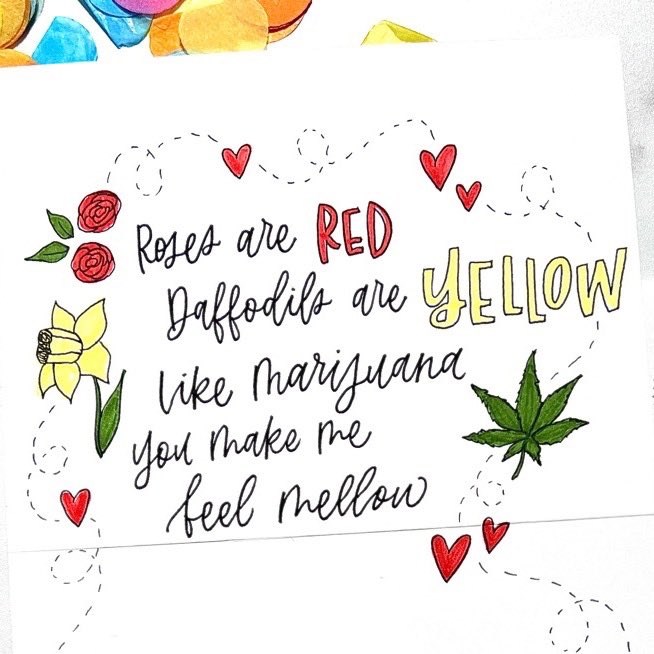 Roses are RED
Daffodils are YELLOW
like marijuana
you make me
feel mellow